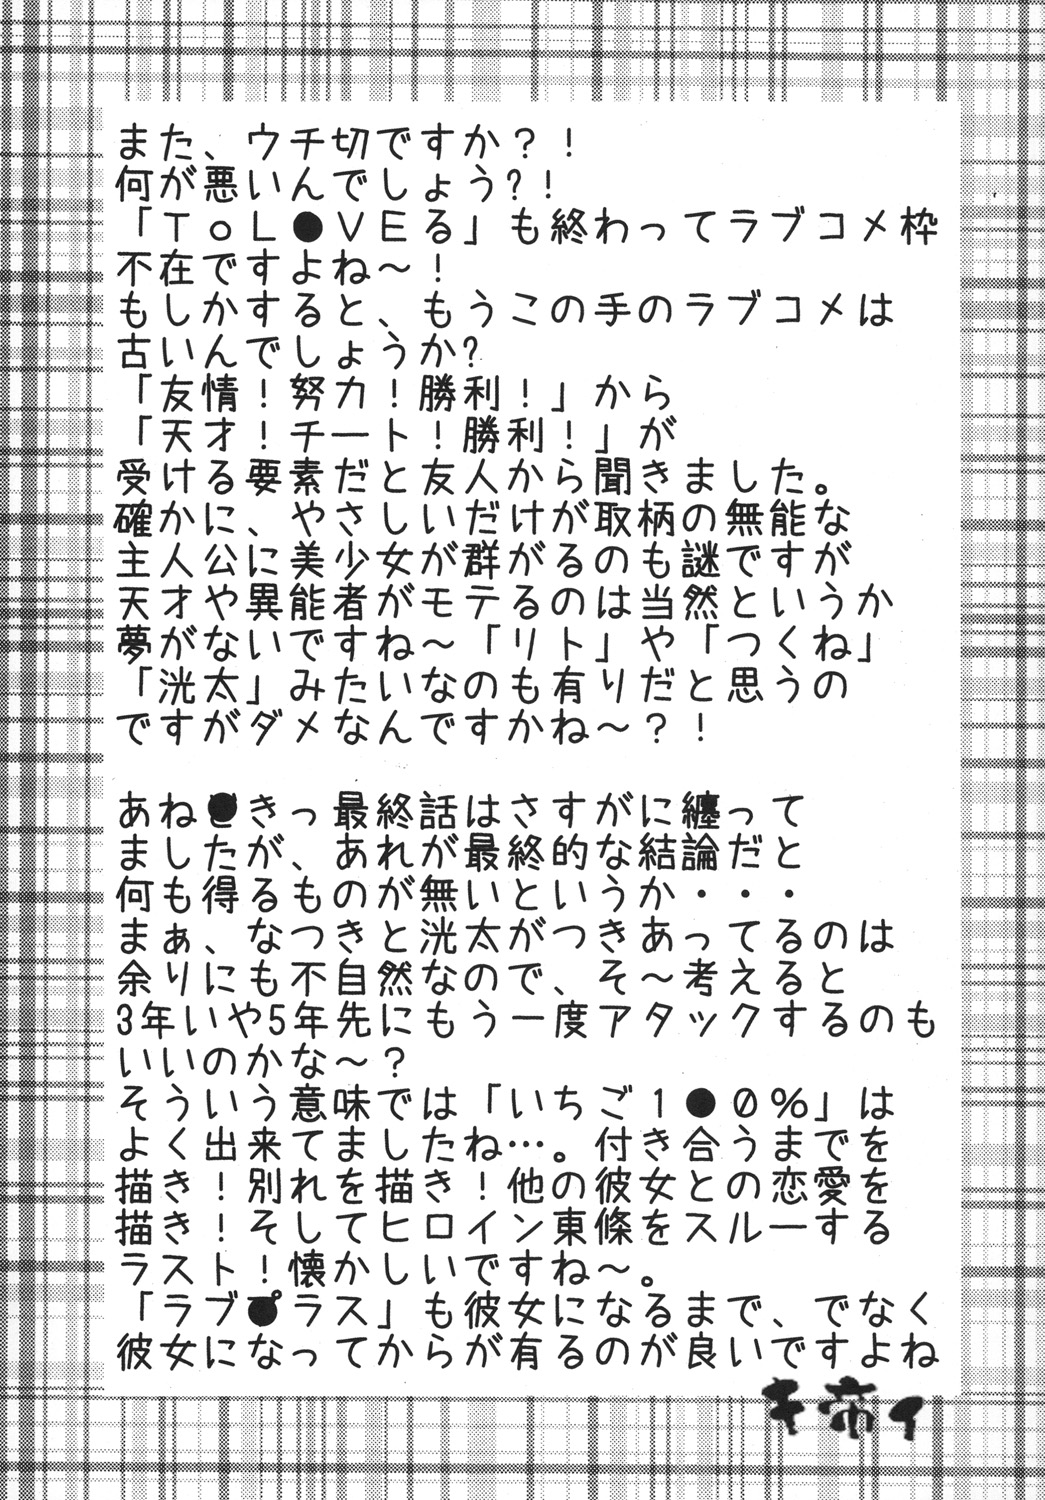 また、ウチ切ですか？！
何が悪いんでしょう?!
「ＴｏＬ●ＶＥる」も終わってラブコメ枠
不在ですよね～！
もしかすると、もうこの手のラブコメは
古いんでしょうか?
「友情！努力！勝利！」から
「天才！チート！勝利！」が
受ける要素だと友人から聞きました。
確かに、やさしいだけが取柄の無能な
主人公に美少女が群がるのも謎ですが
天才や異能者がモテるのは当然というか
夢がないですね～「リト」や「つくね」
「洸太」みたいなのも有りだと思うの
ですがダメなんですかね～？！
あね●きっ最終話はさすがに纏って
ましたが、あれが最終的な結論だと
何も得るものが無いというか・・・
まぁ、なつきと洸太がつきあってるのは
余りにも不自然なので、そ～考えると
3年いや5年先にもう一度アタックするのも
いいのかな～？
そういう意味では「いちご１●０％」は
よく出来てましたね…。付き合うまでを
描き！別れを描き！他の彼女との恋愛を
描き！そしてヒロイン東條をスルーする
ラスト！懐かしいですね～。
「ラブ●ラス」も彼女になるまで、でなく
彼女になってからが有るのが良いですよね
帝イ